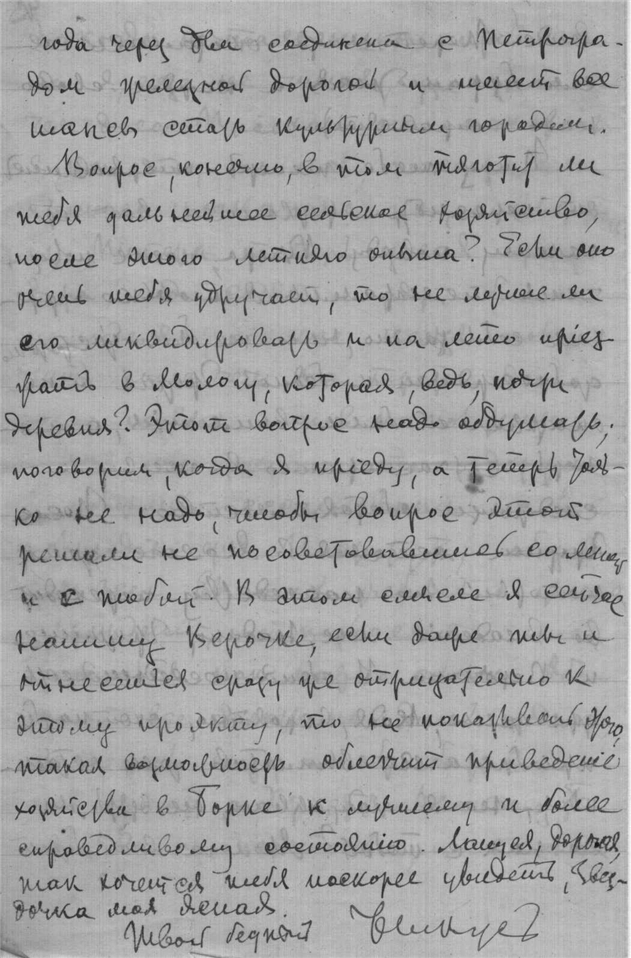 года через два соединена с Петрогра-
дом железной дорогой и имеет все
шансы стать культурным городом.
Вопрос, конечно, в том тяготит ли
тебя дальнейшее сельское хозяйство,
после этого летнего опыта? Если оно
очень тебя удручает, то не лучше ли
его ликвидировать и на лето приез-
жать в Мологу, которая, ведь, почти
деревня? Этот вопрос надо обдумать,
поговорим, когда я приеду, а теперь толь-
ко не надо, чтобы вопрос этот
решали не посоветовавшись со мной
и с тобой. В этом смысле я сейчас
напишу Верочке, если даже ты и
отнесешься сразу же отрицательно к
этому проэкту, то не показывай этого,
такая возможность облегчит приведенiе
хозяйства в Борке к лучшему и более
справедливому состоянiю. Мануся, дорогая,
так хочется тебя поскорее увидеть, Звез-
дочка моя ясная.
Твой бедный